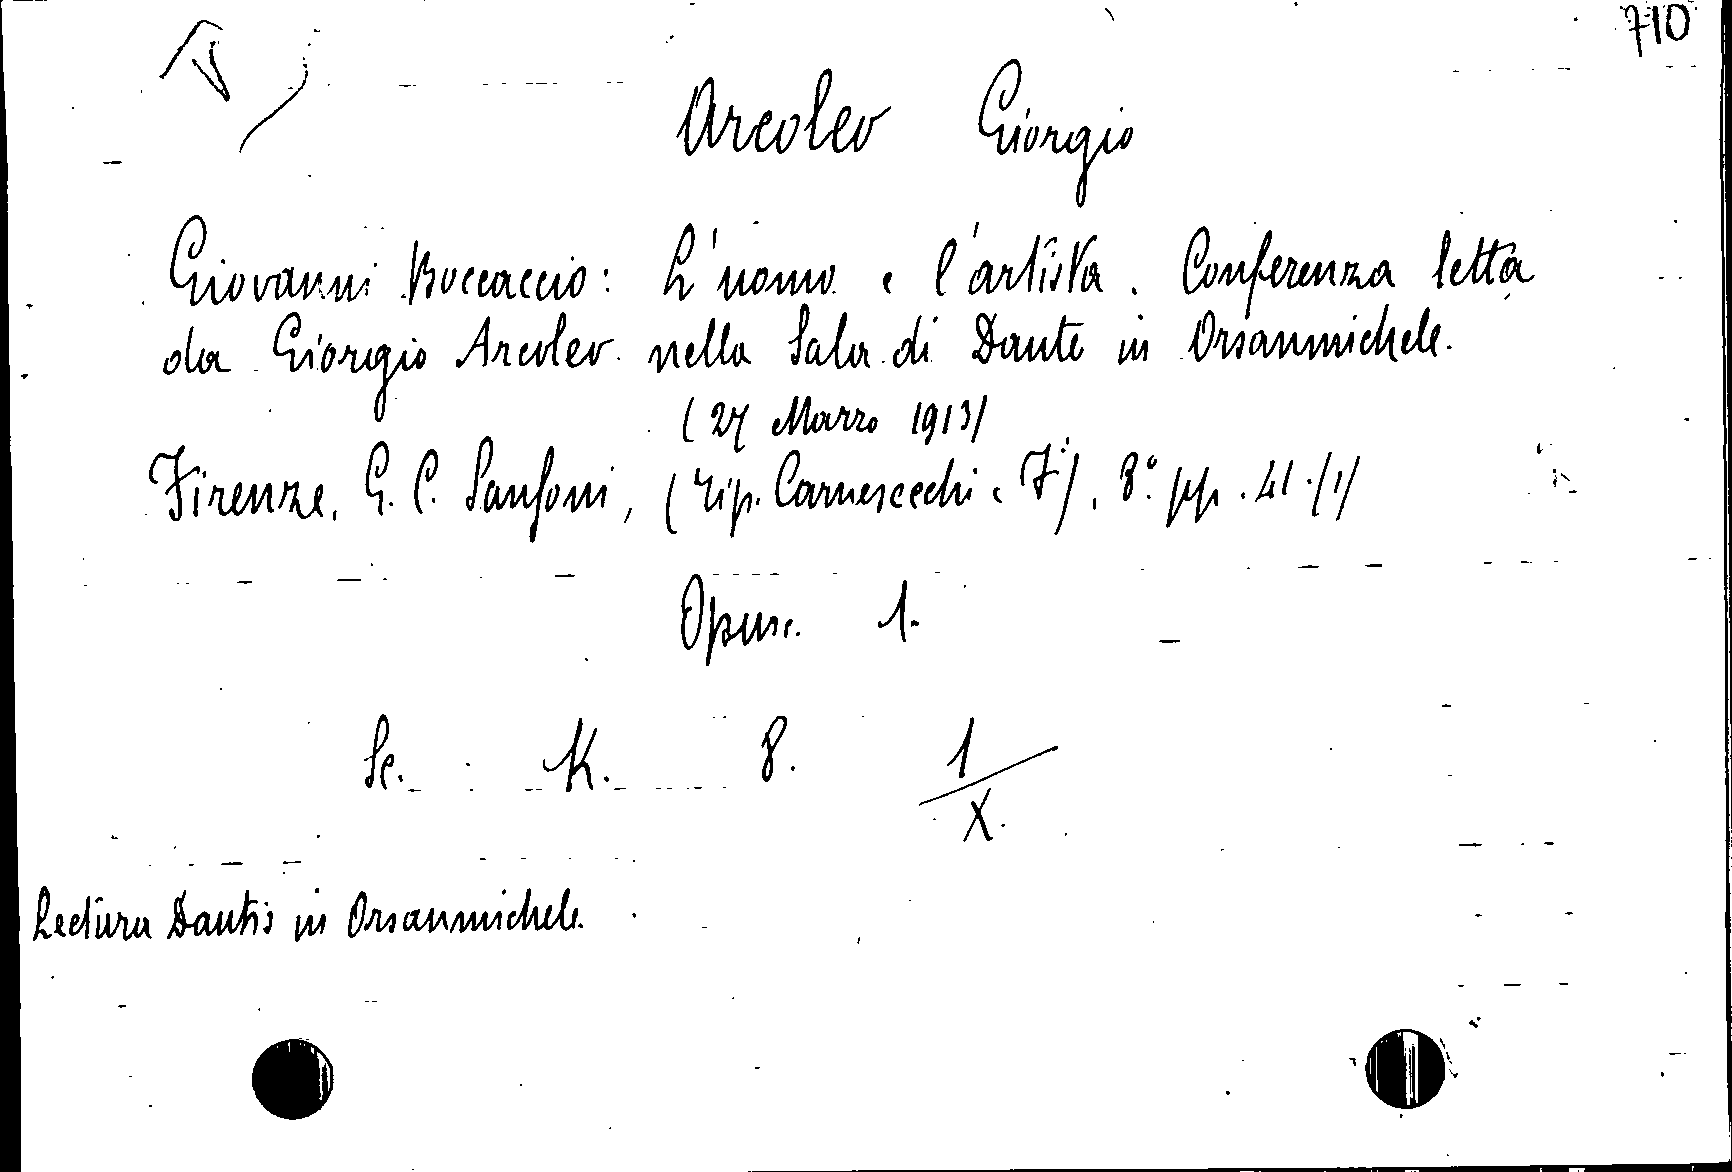 710
Arcoleo Giorgio
Giovanni Boccaccio: L'uomo e l'artista. Conferenza letta
da Giorgio Arcoleo nella Sala di Dante in Orsanmichele.
(27 Marzo 1913)
Firenze, G. C. Sansoni, (Tip. Carnesecchi e F.i), 8.° pp. 41./1/
Opusc. 1.
Sc. K. 8. 1/X.
Lectura Dantis in Orsanmichele.